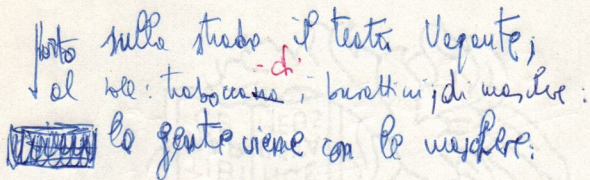 porto sulla strada il teatro Vagante;
al sole: trabocca di burattini; di maschere:
la gente viene con le maschere: